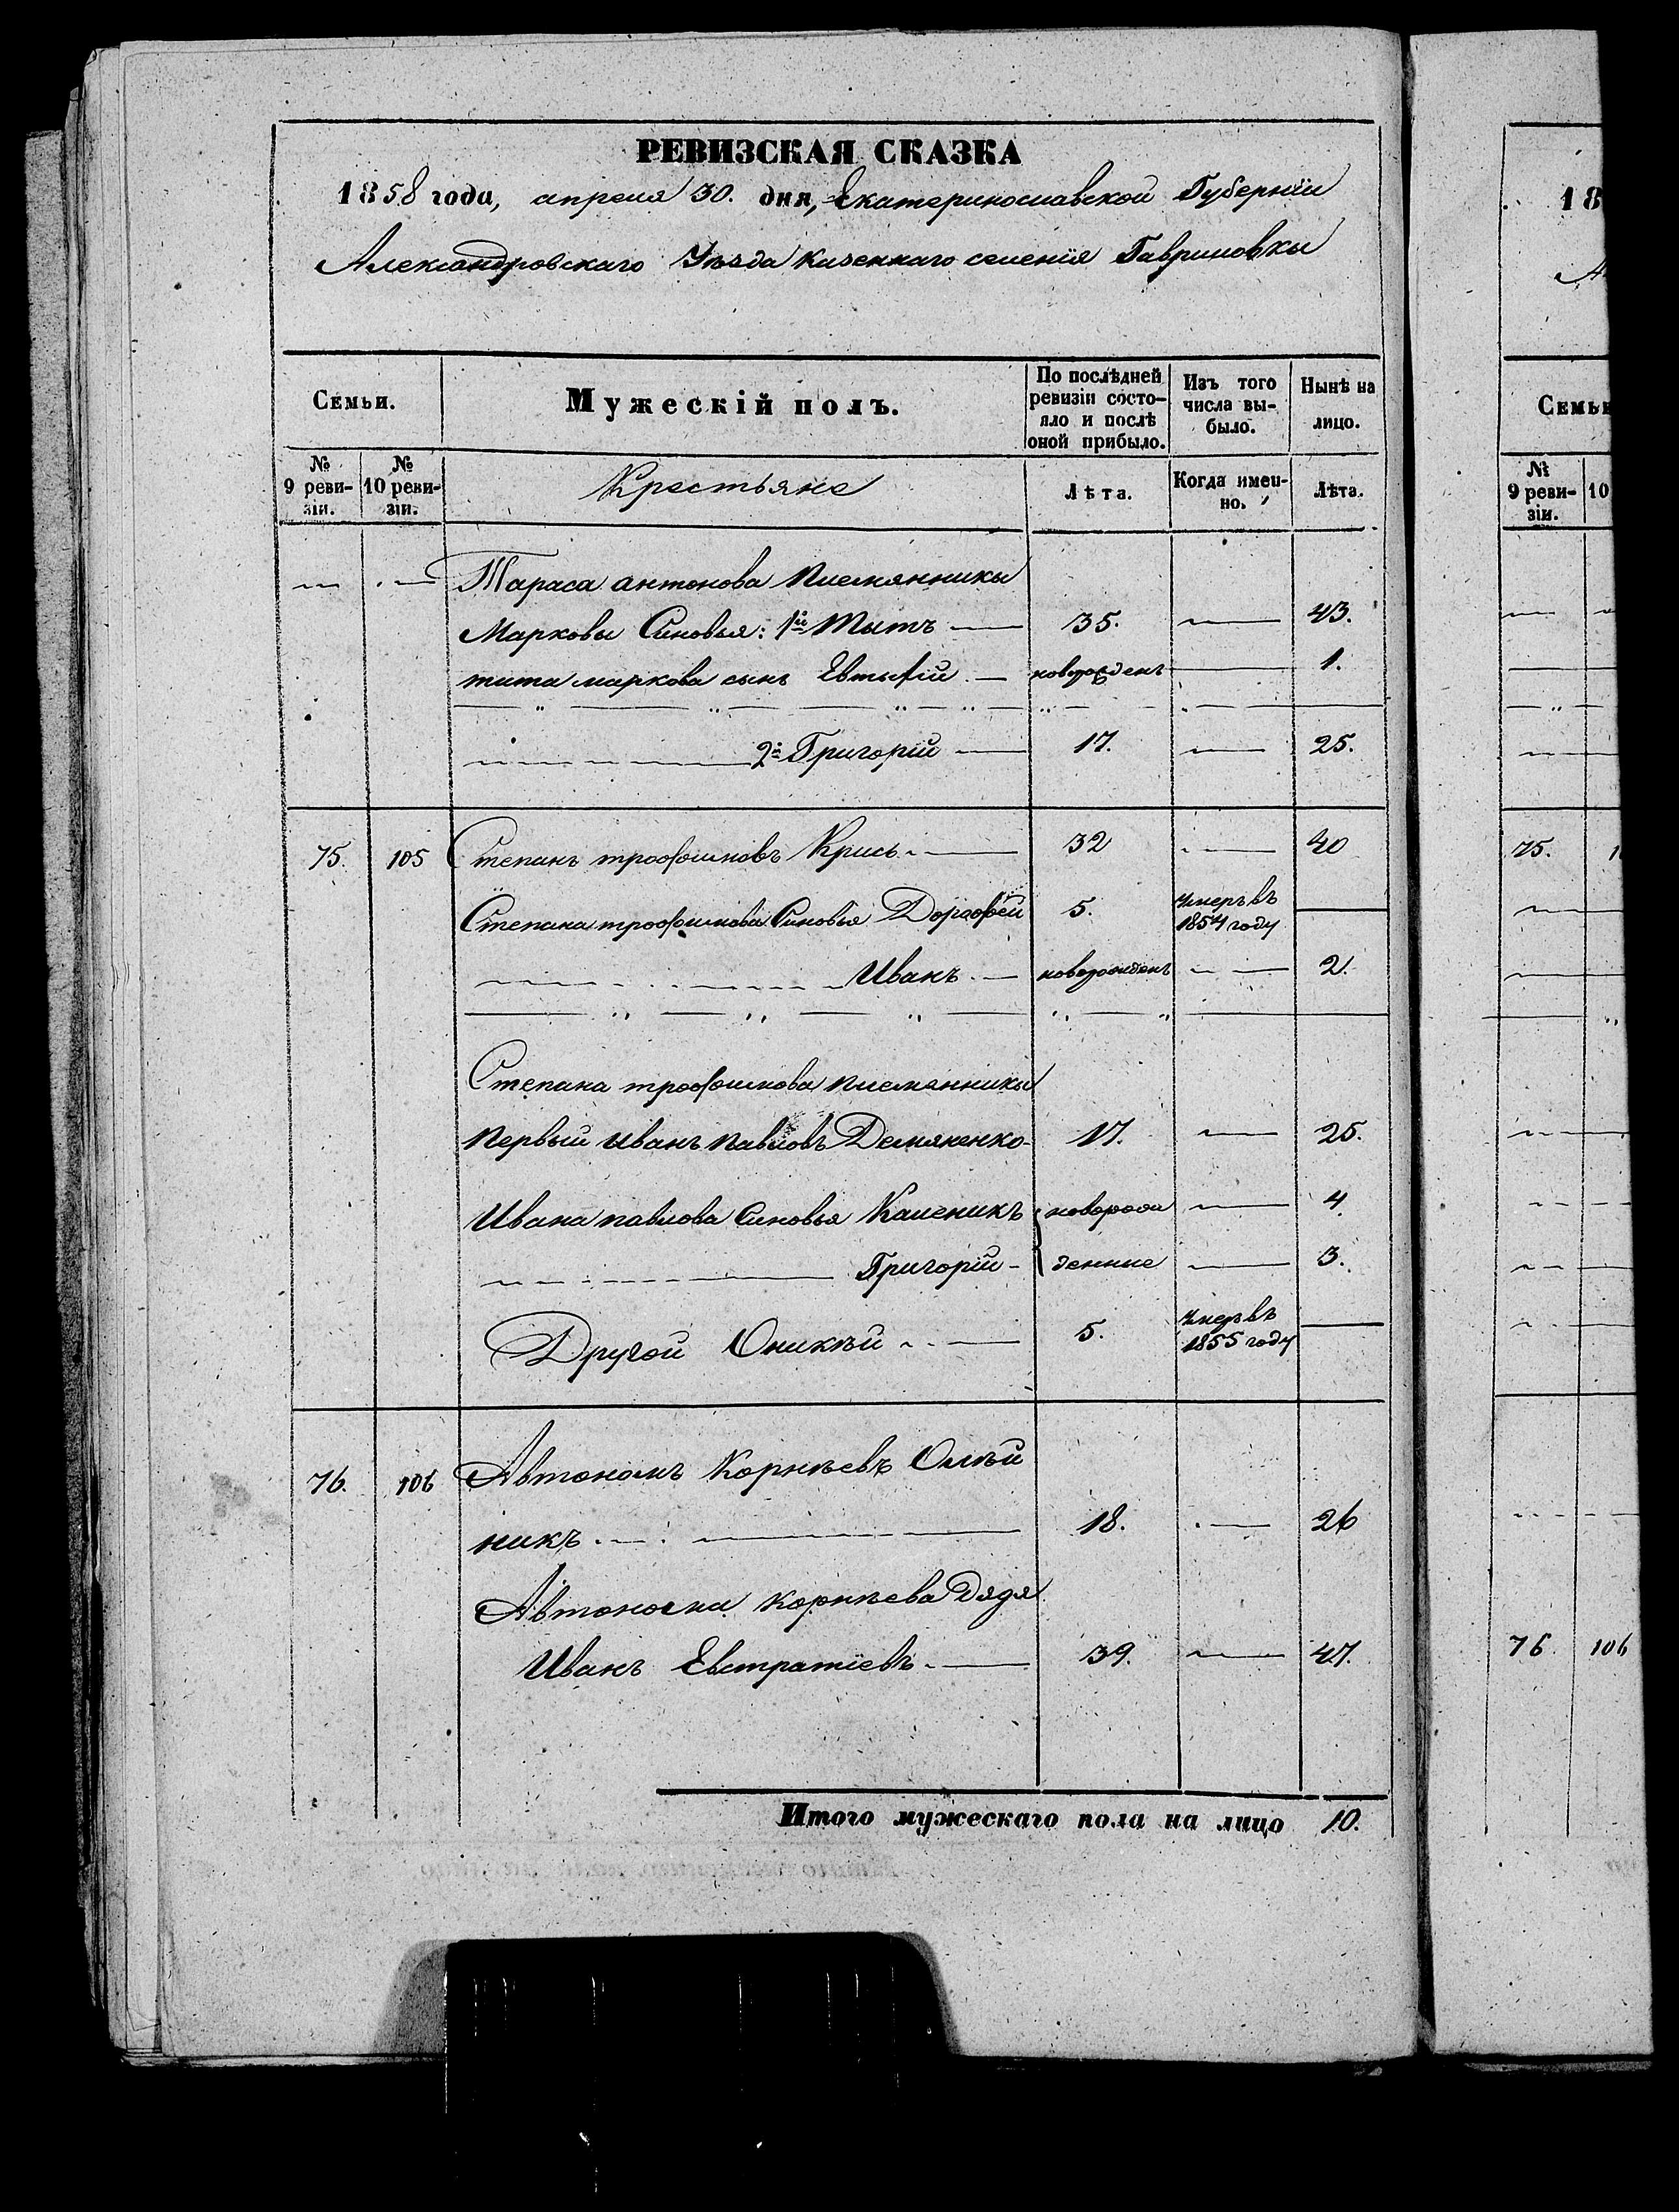 РЕВИЗСКАЯ СКАЗКА
1858 года, апреля 30. дня, Екатеринославской Губерніи
Александровскаго Уѣзда казеннаго селенія Гавриловки
Семьи.
Мужескій полъ.
По послѣдней ревизіи состояло и послѣ оной прибыло.
Изъ того числа выбыло.
Нынѣ на лицо.
№ 9 ревизіи.
№ 10 ревизіи.
Крестьяне
Лѣта.
Когда именно.
Лѣта.
Тараса антонова племянники
Марковы Синовья: 1й Тытъ — 35. — 43.
тита маркова сынъ Евтифій — новорожденъ — 1.
2й Григорій — 17. — 25.
75. 105 Степанъ трофимовъ Крись — 32 — 40
Степана трофимова Синовья Дорофей 5. умеръ въ 1854 году —
Иванъ — новорожденъ — 2.
Степана трофимова племянники
Первый иванъ павловъ Демяненко 17. — 25.
Ивана павлова Синовья Каленикъ новорож — 4.
Григорій — денние — 3.
Другой Оникѣй — 5. умеръ въ 1855 году —
76. 106 Автономъ Корнѣевъ Олѣй
никъ — 18. — 26
Автонома корнѣева Дядя
Иванъ Евстратіевъ — 39. — 47.
Итого мужескаго пола на лицо 10.
18
Семьи
№ 9 ревизіи.
10
75.
76 106